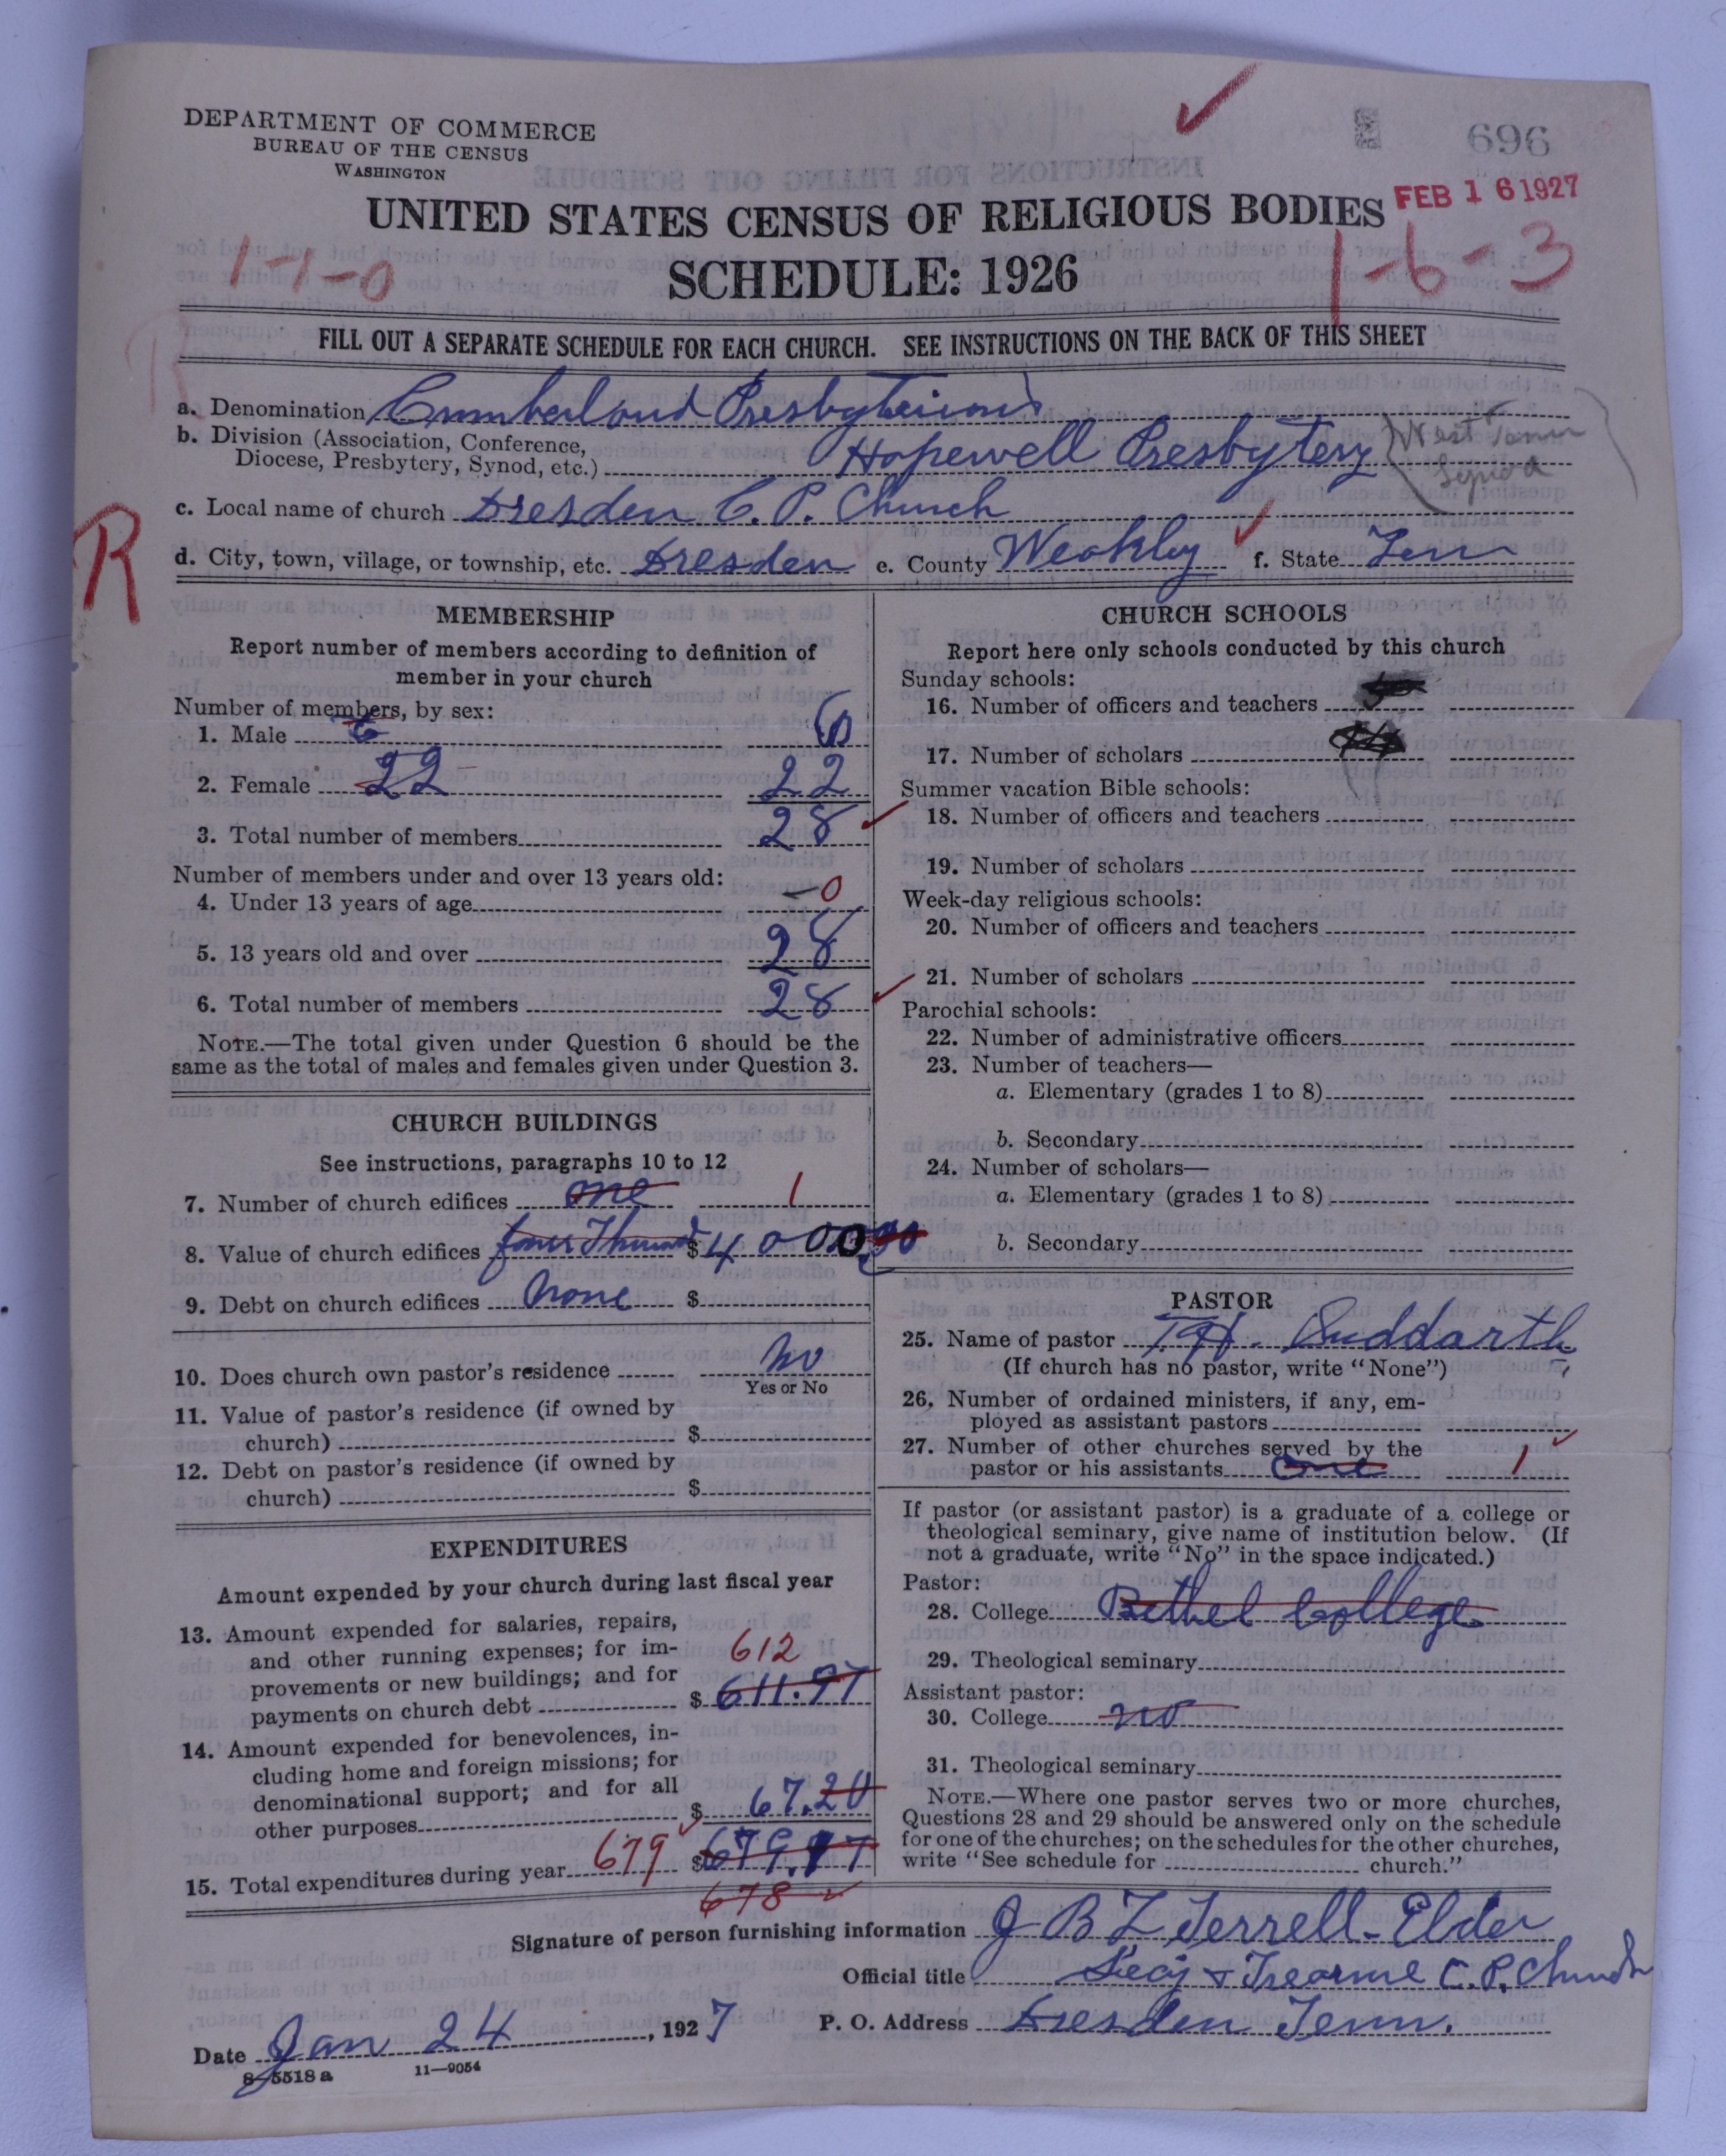 DEPARTMENT OF COMMERCE
BUREAU OF THE CENSUS
WASHINGTON
696
FEB 16 1927
UNITED STATES CENSUS OF RELIGIOUS BODIES
1-1-0
SCHEDULE: 1926
1-6-3
FILL OUT A SEPARATE SCHEDULE FOR EACH CHURCH. SEE INSTRUCTIONS ON THE BACK OF THIS SHEET
R
a. Denomination Cumberland Presbyterians
b. Division (Association, Conference,
Diocese, Presbytery, Synod, etc.) Hopewell Presbytery
West Tenn
Synod
c. Local name of church Dresden C. P. Church
R
d. City, town, village, or township, etc. Dresden e. County Weakley f. State Tenn
MEMBERSHIP
Report number of members according to definition of
member in your church
Number of members, by sex:
1. Male 6 6
2. Female 22 22
3. Total number of members 28
Number of members under and over 13 years old:
4. Under 13 years of age - 0
5. 13 years old and over 28
6. Total number of members 28
NOTE.—The total given under Question 6 should be the
same as the total of males and females given under Question 3.
CHURCH BUILDINGS
See instructions, paragraphs 10 to 12
7. Number of church edifices one 1
8. Value of church edifices four Thousand $ 4000.00
9. Debt on church edifices None $
10. Does church own pastor's residence No
Yes or No
11. Value of pastor's residence (if owned by
church) $
12. Debt on pastor's residence (if owned by
church) $
EXPENDITURES
Amount expended by your church during last fiscal year
13. Amount expended for salaries, repairs,
and other running expenses; for im-
provements or new buildings; and for
payments on church debt $ 611.97
612
14. Amount expended for benevolences, in-
cluding home and foreign missions; for
denominational support; and for all
other purposes $ 67.20
15. Total expenditures during year 679 $ 679.17
678
CHURCH SCHOOLS
Report here only schools conducted by this church
Sunday schools:
16. Number of officers and teachers
17. Number of scholars
Summer vacation Bible schools:
18. Number of officers and teachers
19. Number of scholars
Week-day religious schools:
20. Number of officers and teachers
21. Number of scholars
Parochial schools:
22. Number of administrative officers
23. Number of teachers—
a. Elementary (grades 1 to 8)
b. Secondary
24. Number of scholars—
a. Elementary (grades 1 to 8)
b. Secondary
PASTOR
25. Name of pastor Suddarth
(If church has no pastor, write "None")
26. Number of ordained ministers, if any, em-
ployed as assistant pastors
27. Number of other churches served by the
pastor or his assistants One 1
If pastor (or assistant pastor) is a graduate of a college or
theological seminary, give name of institution below. (If
not a graduate, write "No" in the space indicated.)
Pastor:
28. College Bethel College
29. Theological seminary
Assistant pastor:
30. College no
31. Theological seminary
NOTE.—Where one pastor serves two or more churches,
Questions 28 and 29 should be answered only on the schedule
for one of the churches; on the schedules for the other churches,
write "See schedule for church."
Signature of person furnishing information J B Z Terrell - Elder
Official title Secy + Treasure C. P. Church
Date Jan 24, 1927 P. O. Address Dresden Tenn.
8-5518 a 11-9054